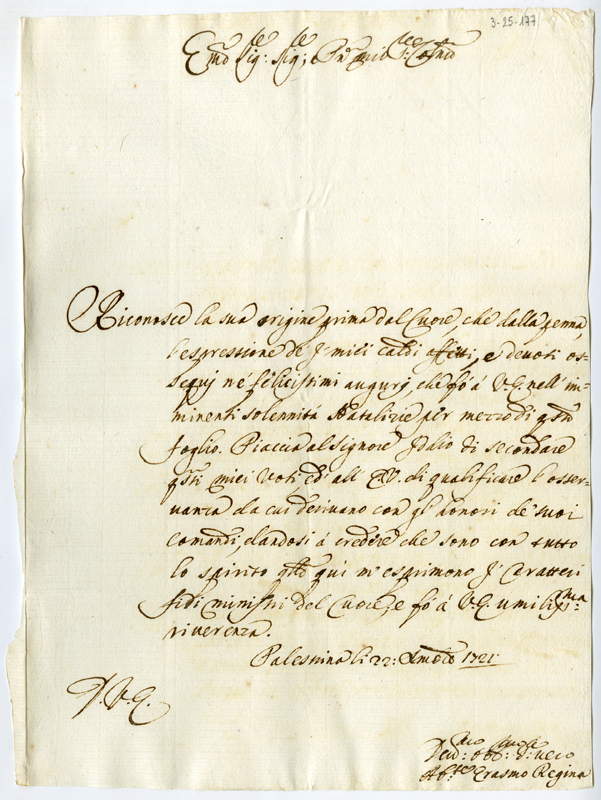 3-25-177
Sig:re Sig:re
Riconosce la sua origine prima dal Cuore, che dalla penna,
l'espressione de i miei caldi affetti, e devoti os=
sequj né felicissimi augurj, che fò á V. E. nell' im=
minenti solennitá Natalizie per mezzo di q.sto
foglio. Piaccia al Signore Idio di secondare
q.sti miei voti, ed all' E.V. di qualificare l'osser=
vanza da cui derivano con gl' honori de' suoi
comandi, dandosi á credere che sono con tutto
lo spirito q.to quì m'esprimono i Caratteri
fidi ministri del Cuore, e fò á V. E. umiliss:ma
riverenza.
Palestrina li 22: 1721
D. V. E.
Erasmo Regina